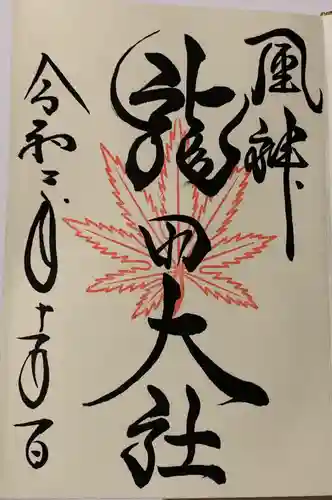 風神
龍田大社
令和二年十一月一日